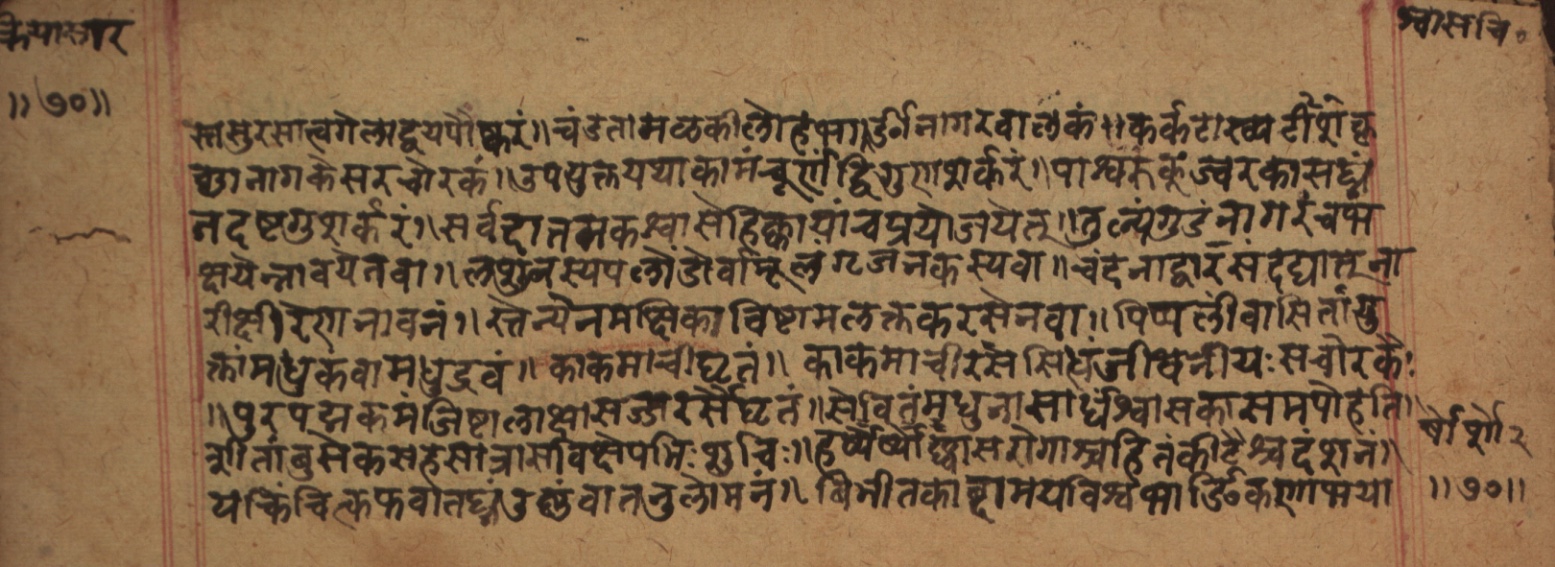 क्रियासागर
॥७०॥
श्वासचि०
स्तसुरसात्वगेलाद्वयपौष्करं॥ चंडतामलकीलोहभार्ङ्गीनागरवालकं॥ कर्कटाख्यशटीकृ
ष्णानागकेसरचोरकं॥ उपयुक्तयथाकामंचूर्णंद्विगुणशर्करं॥ पार्श्वरुक्ज्वरकासघ्नं
शर्करं॥ सर्वदातमकश्वासेहिक्कायांचप्रयोजयेत्॥ तुल्यंगुडंनागरंचभ
क्षयेन्नावयेतवा॥ लशुनस्यपलांडोर्वामूलंगृंजनकस्यवा॥ चंदनाद्वारसंदद्यात्ना
रीक्षीरेणनावनं॥ स्तन्येनमक्षिकाविष्टामलक्तकरसेनवा॥ पिप्पलींवासितायु
क्तांमधुकंवामधुद्रवं॥ काकमाचीघृतं॥ काकमाचीरसेसिद्धंजीवनीयःसचोरकैः
॥पुरपद्मकमंजिष्टालाक्षासर्जरसैर्घृतं॥ सेवितंमधुनासार्धंश्वासकासमपोहति॥
शीतांबुसेकसहसात्रासविक्षेपभिःशुचिः॥ हर्ष्येर्ष्याश्वासरोगाश्चहितंकीटैश्चदंशनं॥
यत्किंचित्कफवातघ्नंउष्णंवातनुलोमनं॥ बिभीतका
॥७०॥